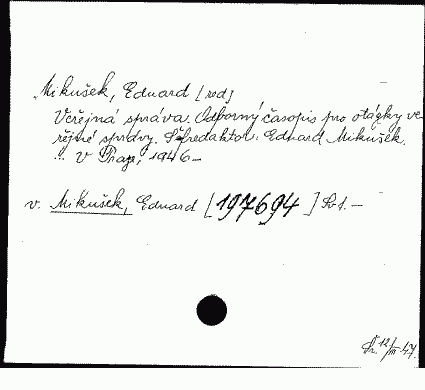 Mikušek, Eduard [red]
Veřejná správa. Odborný časopis pro otázky ve-
řejné správy. Šéfredaktor: Eduard Mikušek.
... V Praze, 1946 –
v. Mikušek, Eduard [197694] Sv. 1. –
12/III 47.